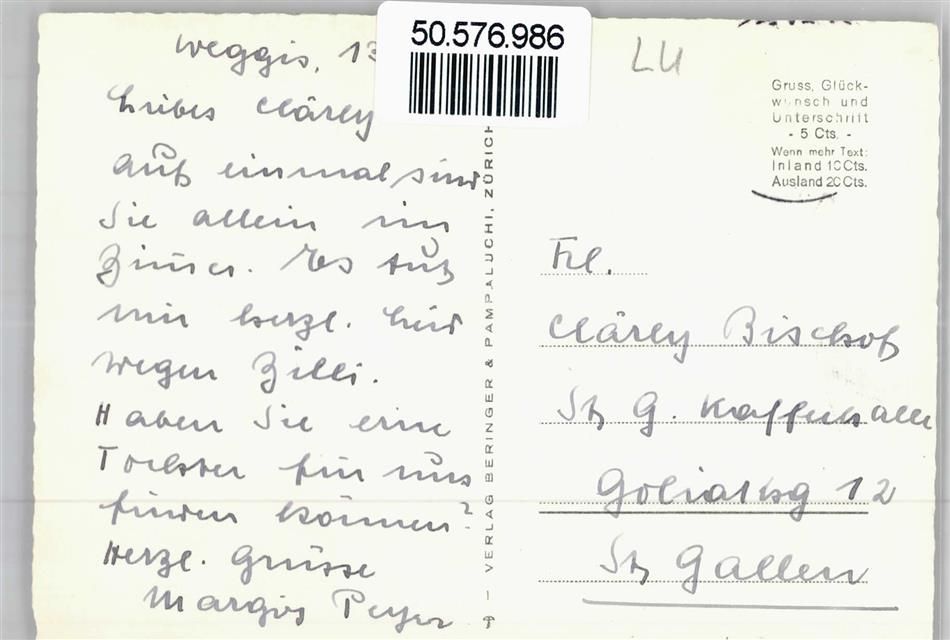 50.576.986
Weggis, 13
LU
Gruss, Glück-
wunsch und
Unterschrift
- 5 Cts. -
Wenn mehr Text:
Inland 10Cts.
Ausland 20Cts.
Liebes Clärly
auf einmal sind
Sie allein im
Zimer. Es tut
mir herzl. Leid
wegen Zilli.
Haben Sie eine
Tochter für uns
finden können?
Herzl. Grüsse
Margis Peyer
VERLAG BERINGER & PAMPALUCHI, ZÜRICH
Frl.
Clärly Bischof
St. G. Kaffeehalle
Goliathsg 12
St. Gallen